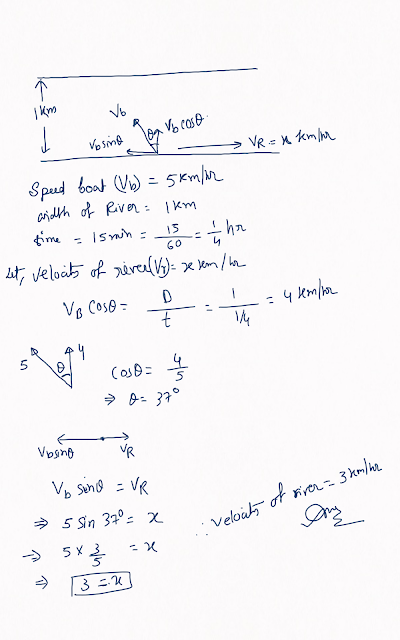 1 km
Vb
Vb cosθ
θ
Vb sinθ
VR = x km/hr
Speed boat (Vb) = 5 km/hr
width of River = 1 km
time = 15 min = 15/60 = 1/4 hr
let, velocity of river (Vr) = x km/hr
VB cosθ = D/t = 1/1/4 = 4 km/hr
5 θ 4
cosθ = 4/5
⇒ θ = 37°
Vb sinθ VR
Vb sinθ = VR
⇒ 5 sin 37° = x
⇒ 5 × 3/5 = x
⇒ 3 = x
∴ velocity of river = 3 km/hr
Ans